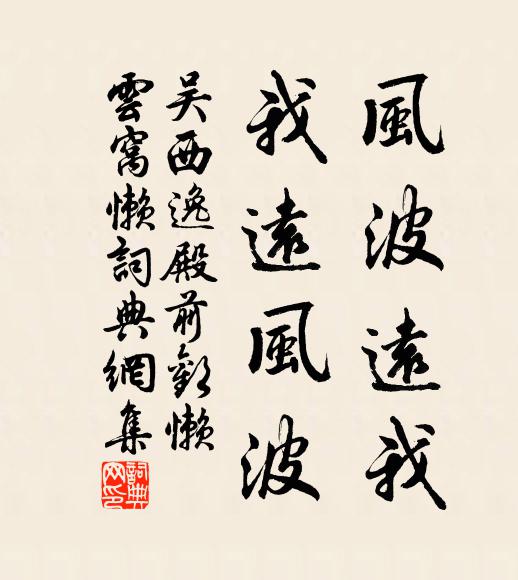 風波遠我
我遠風波
吴西逸殿前歡懶
雲窩懶詞典網集
詞典
网印